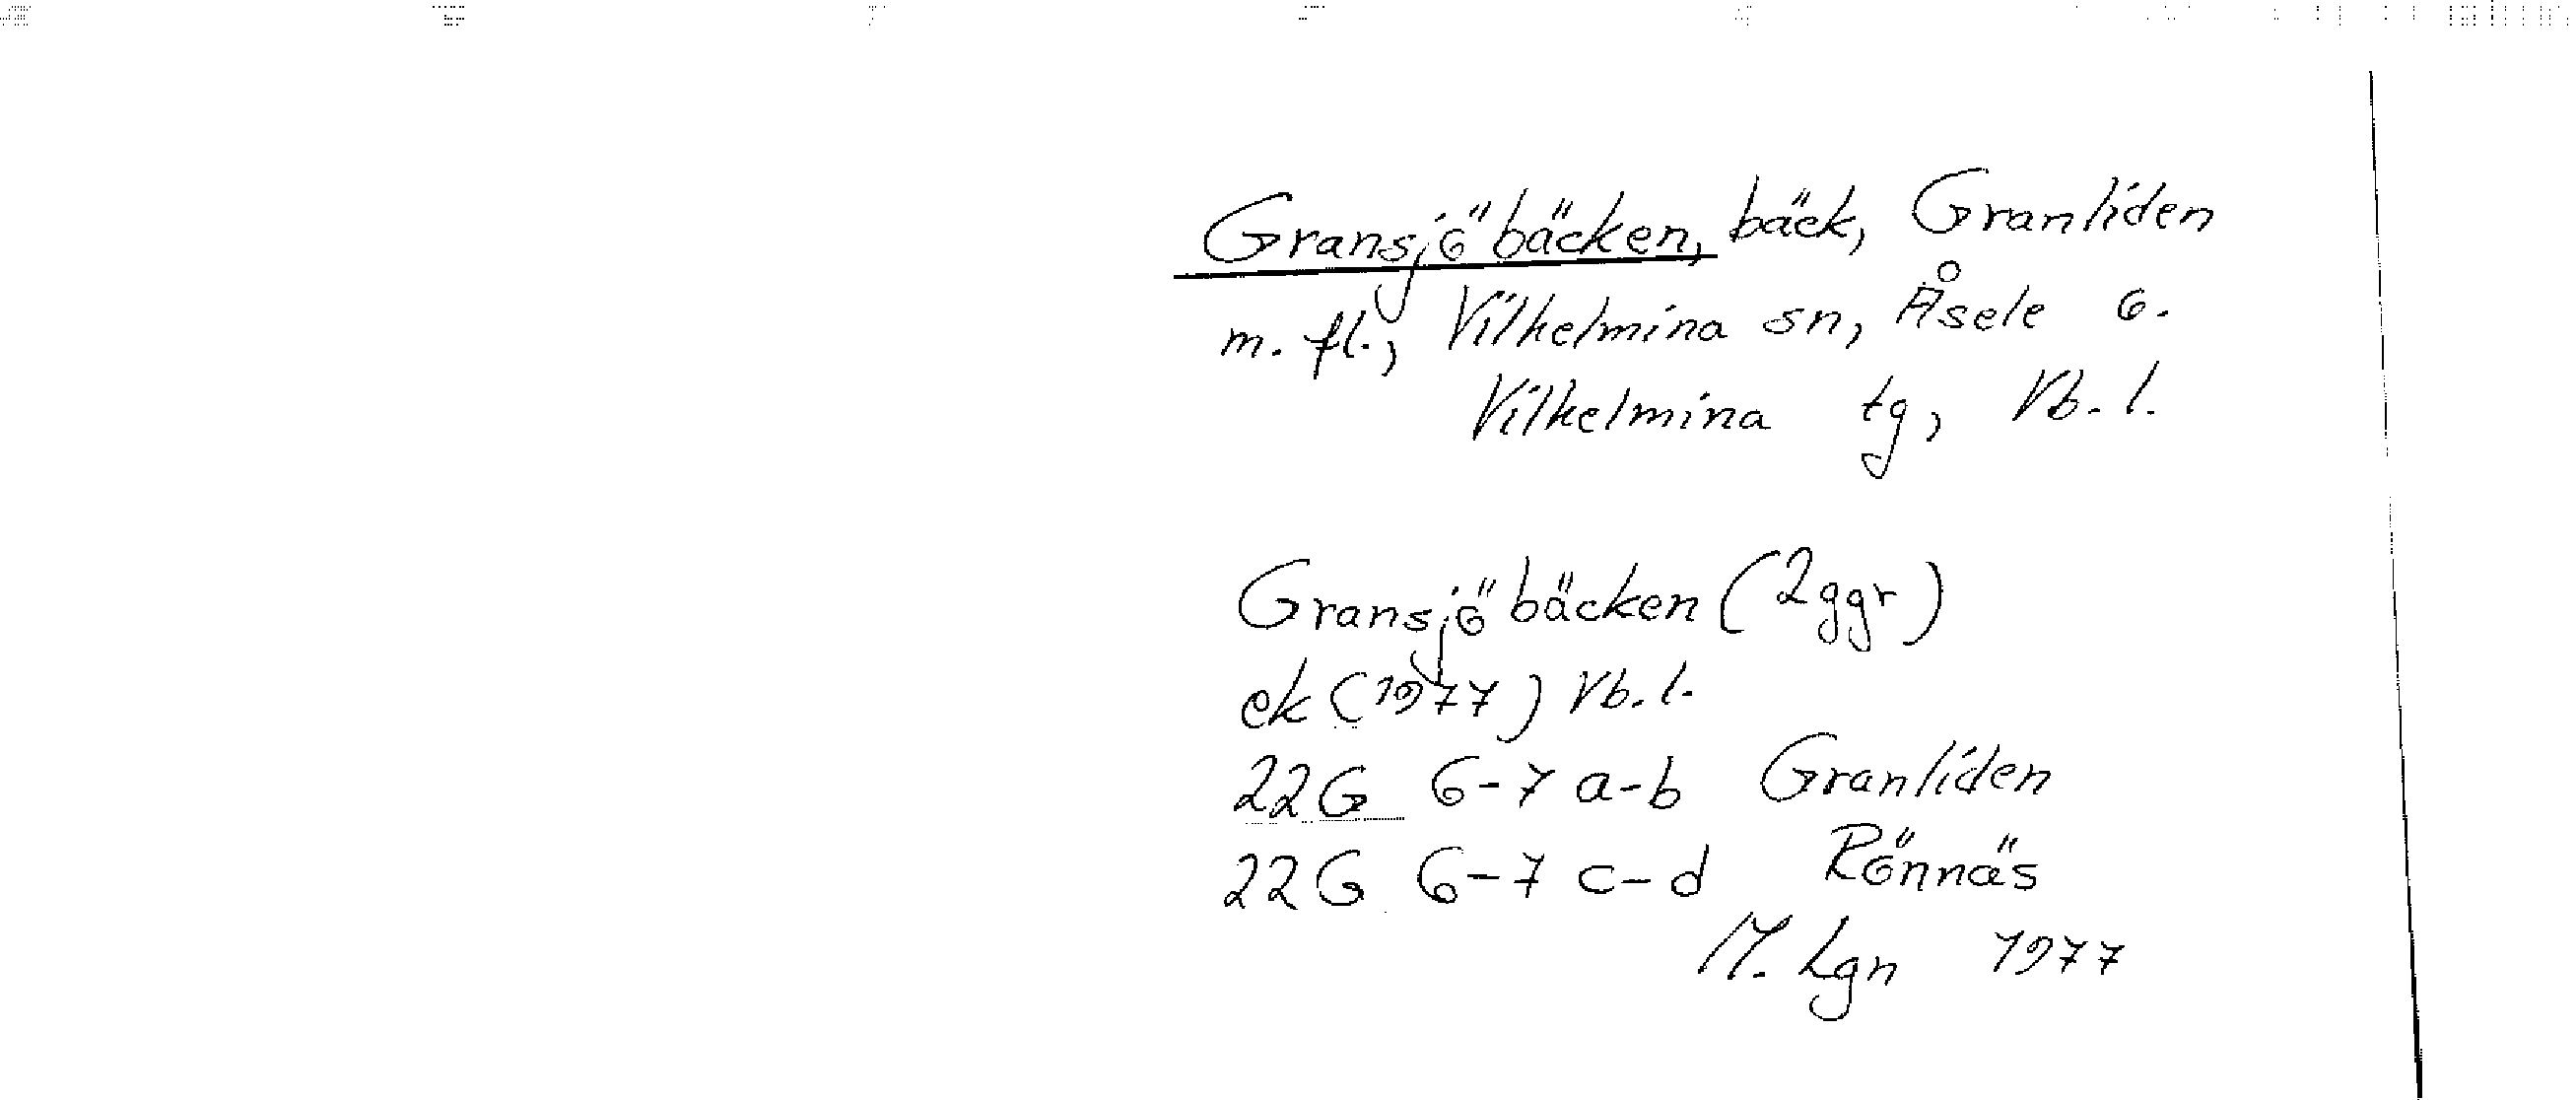 Gransjöbäcken, bäck, Granliden
m. fl., Vilhelmina sn, Åsele o.
Vilhelmina tg, Vb. l.
Gransjöbäcken (2ggr)
ek (1977) Vb. l.
22G 6-7 a-b Granliden
22G 6-7 c-d Rönnäs
M. Lgn 1977